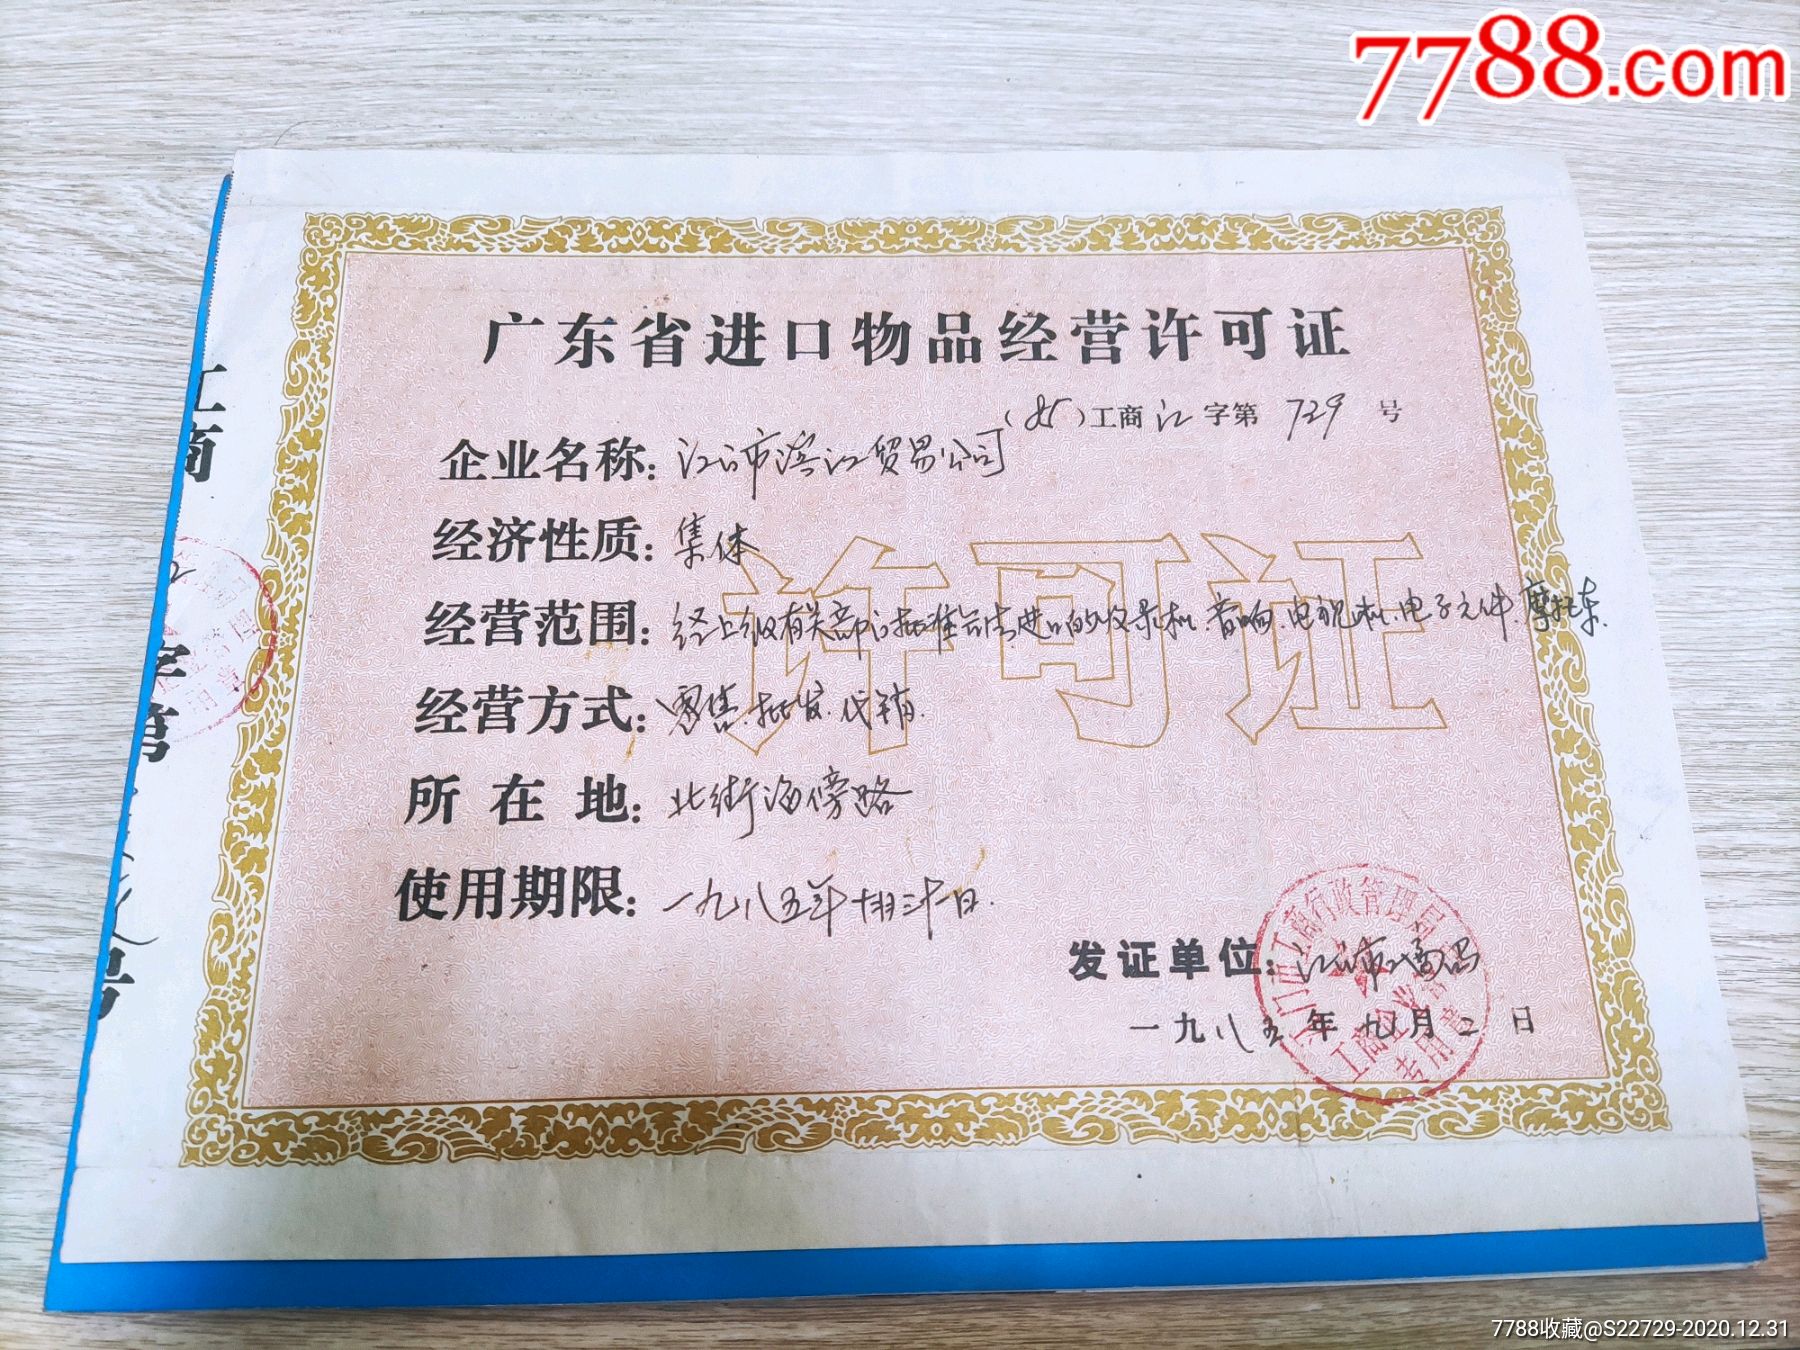 7788.com
广东省进口物品经营许可证
（85）工商江字第729号
企业名称：江门市滨江贸易公司
经济性质：集体
许可证
经营范围：经上级有关部门批准合法进口的收录机、音响、电视机、电子元件、摩托车.
经营方式：零售、批发、代销.
所在地：北街海傍路
使用期限：一九八五年十月三十一日.
发证单位：江门市工商局
一九八五年九月二日
江门市工商行政管理局
工商企业
专用章
工商
字第
号
7788收藏@S22729-2020.12.31